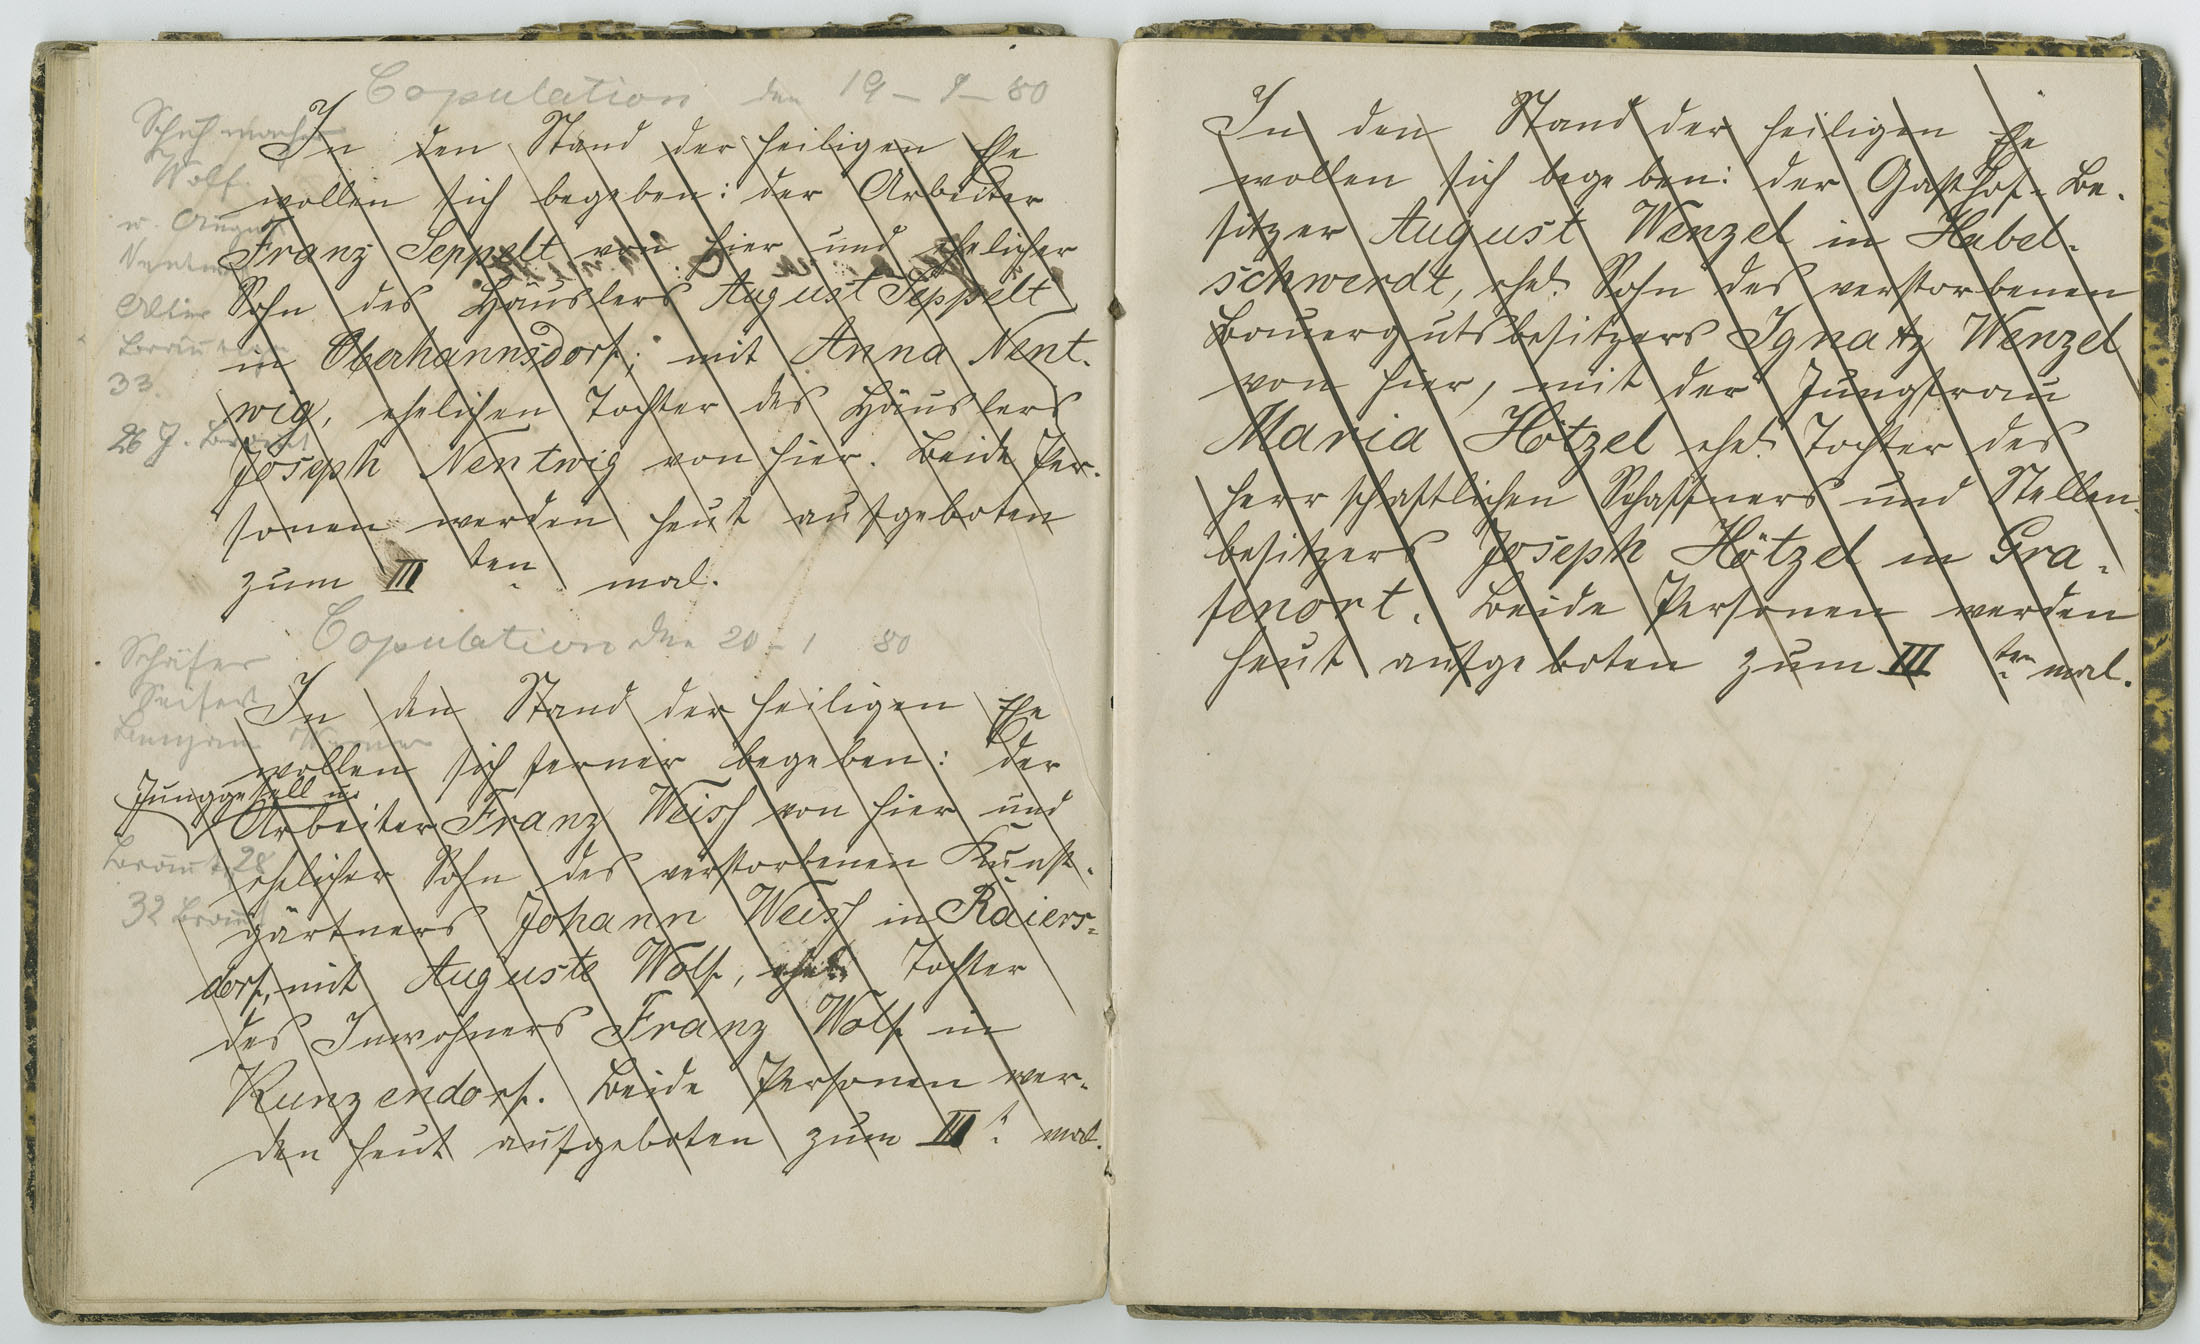 Copulation den 19 – 1 – 80
Schuhmacher
Wolf.
u. August
Nentwig
Alter
Bräutigam
33.
26 J. Braut
In den Stand der heiligen Ehe
wollen sich begeben: der Arbeiter
Franz Seppelt von hier und ehelicher
Sohn des Häuslers August Seppelt
in Oberhannsdorf; mit Anna Nent-
wig, ehelichen Tochter des Häuslers
Joseph Nentwig von hier. Beide Per-
sonen werden heut aufgeboten
zum III ten mal.
Copulation den 20 – 1 80
Schäfer
Seifert
In den Stand der heiligen Ehe
wollen sich ferner begeben: der
Junggesell u.
Arbeiter Franz Weiss von hier und
ehelicher Sohn des verstorbenen Kunst-
gärtners Johann Weiss in Raiers-
dorf, mit Auguste Wolf, ehel. Tochter
des Inwohners Franz Wolf in
Kunzendorf. Beide Personen wer-
den heut aufgeboten zum III t. mal.
Braut 28
32 Bräut
In den Stand der heiligen Ehe
wollen sich begeben: der Gasthof-Be-
sitzer August Wenzel in Habel-
schwerdt, ehel. Sohn des verstorbenen
Bauergutsbesitzers Ignatz Wenzel
von hier, mit der Jungfrau
Maria Hötzel ehel. Tochter des
herrschaftlichen Schaffners und Stellen-
besitzers Joseph Hötzel in Gra-
fenort. Beide Personen werden
heut aufgeboten zum III ten mal.